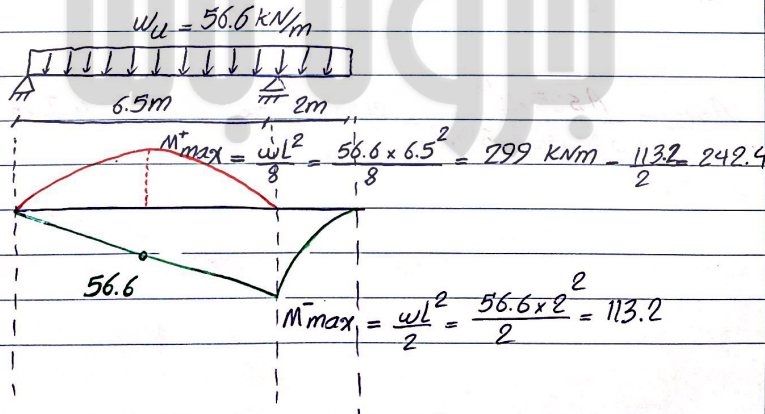 wu = 56.6 kN/m
6.5m 2m
M+max = wL²/8 = 56.6 x 6.5²/8 = 299 KNm - 113.2/2 = 242.4
56.6
M-max = wL²/2 = 56.6 x 2²/2 = 113.2